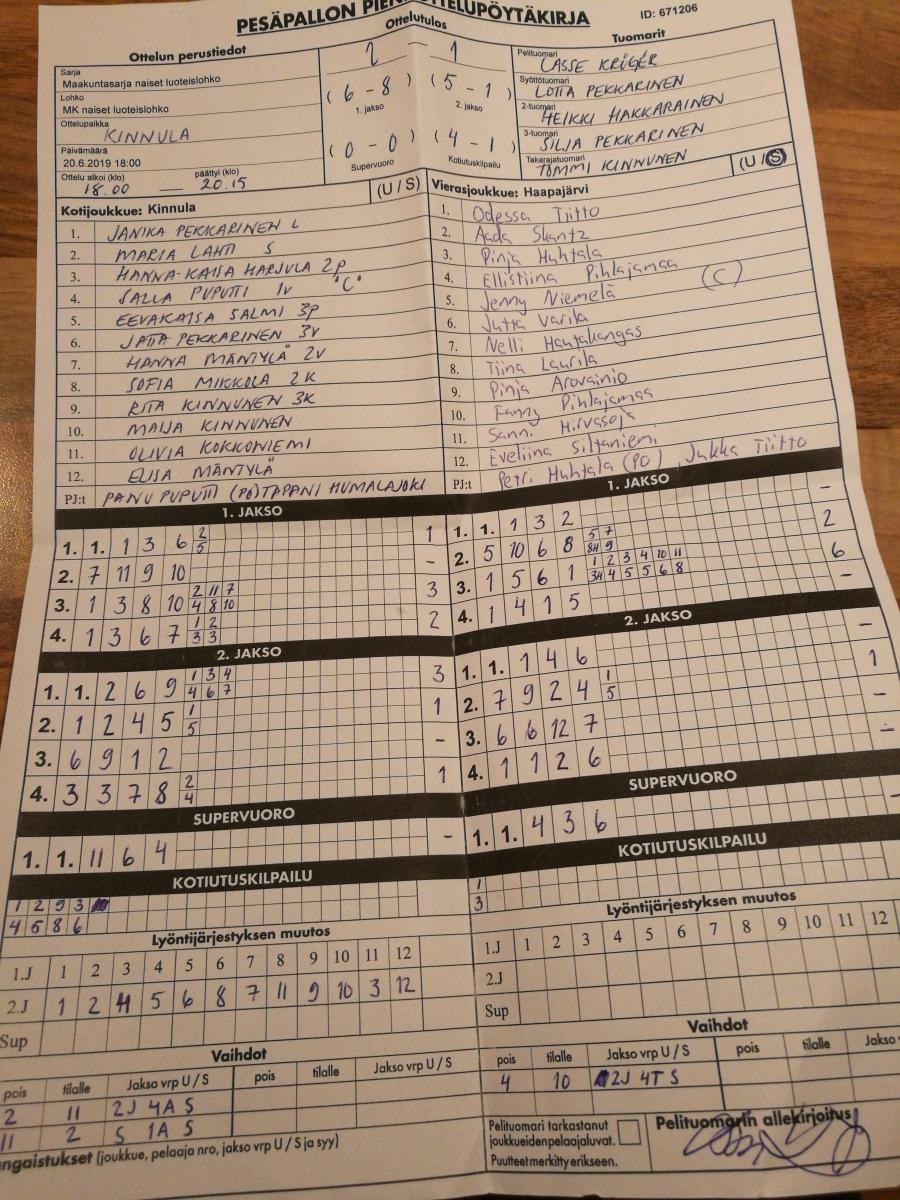 PESÄPALLON PIENOTTELUPÖYTÄKIRJA ID: 671206
Ottelun perustiedot Ottelutulos Tuomarit
Sarja
Maakuntasarja naiset luoteislohko
Lohko
MK naiset luoteislohko
Ottelupaikka
KINNULA
Päivämäärä
20.6.2019 18:00
Ottelu alkoi (klo) päättyi (klo)
18.00 — 20.15
2 – 1
(6 – 8) (5 – 1)
1. jakso 2. jakso
(0 – 0) (4 – 1)
Supervuoro Kotiutuskilpailu
Pelituomari
LASSE KRIGER
Syöttötuomari
LOTTA PEKKARINEN
2-tuomari
HEIKKI HAKKARAINEN
3-tuomari
SILJA PEKKARINEN
Takarajatuomari
TOMMI KINNUNEN
Kotijoukkue: Kinnula (U / S)
1. JANIKA PEKKARINEN L
2. MARIA LAHTI S
3. HANNA-KAISA HARJULA 2P
4. SALLA PUPUTTI 1V "C"
5. EEVAKAISA SALMI 3P
6. JATTA PEKKARINEN 3V
7. HANNA MÄNTYLÄ 2V
8. SOFIA MIKKOLA 2K
9. RITA KINNUNEN 3K
10. MAIJA KINNUNEN
11. OLIVIA KOKKONIEMI
12. ELISA MÄNTYLÄ
PJ:t PANU PUPUTTI (PO) TAPANI HUMALAJOKI
Vierasjoukkue: Haapajärvi (U / S)
1. Odessa Tiitto
2. Aada Skantz
3. Pinja Huhtala
4. Ellistiina Pihlajamaa
5. Jenny Niemelä (C)
6. Jutta Varila
7. Nelli Hautakangas
8. Tiina Laurila
9. Pinja Arovainio
10. Fanny Pihlajamaa
11. Sanni Hirvasoja
12. Eveliina Siltaniemi
PJ:t Petri Huhtala (PO), Jukka Tiitto
1. JAKSO
1. 1. 1 3 6 2 1
5
2. 7 11 9 10 -
3. 1 3 8 10 2 11 7 3
4 8 10
4. 1 3 6 7 1 2 2
3 3
2. JAKSO
1. 1. 2 6 9 1 3 4 3
4 6 7
2. 1 2 4 5 1 1
5
3. 6 9 1 2 -
4. 3 3 7 8 2 1
4
SUPERVUORO
1. 1. 11 6 4 -
KOTIUTUSKILPAILU
1 2 9 3
4 5 8 6
1. JAKSO
1. 1. 1 3 2 –
2. 5 10 6 8 5 7 2
8H 9
3. 1 5 6 1 1 2 3 4 10 11 6
3H 4 5 5 6 8
4. 1 4 1 5 –
2. JAKSO
1. 1. 1 4 6 –
2. 7 9 2 4 1 1
5
3. 6 6 12 7 –
4. 1 1 2 6 –
SUPERVUORO
1. 1. 4 3 6 –
KOTIUTUSKILPAILU
1
3
Lyöntijärjestyksen muutos
1.J 1 2 3 4 5 6 7 8 9 10 11 12
2.J 1 2 4 5 6 8 7 11 9 10 3 12
Sup
Lyöntijärjestyksen muutos
1.J 1 2 3 4 5 6 7 8 9 10 11 12
2.J
Sup
Vaihdot
pois tilalle Jakso vrp U / S pois tilalle Jakso vrp U / S
2 11 2J 4A S
11 2 S 1A S
Vaihdot
pois tilalle Jakso vrp U / S pois tilalle Jakso
4 10 2J 4T S
ngaistukset (joukkue, pelaaja nro, jakso vrp U / S ja syy)
Pelituomari tarkastanut
joukkueidenpelaajaluvat.
Puutteet merkitty erikseen.
Pelituomarin allekirjoitus